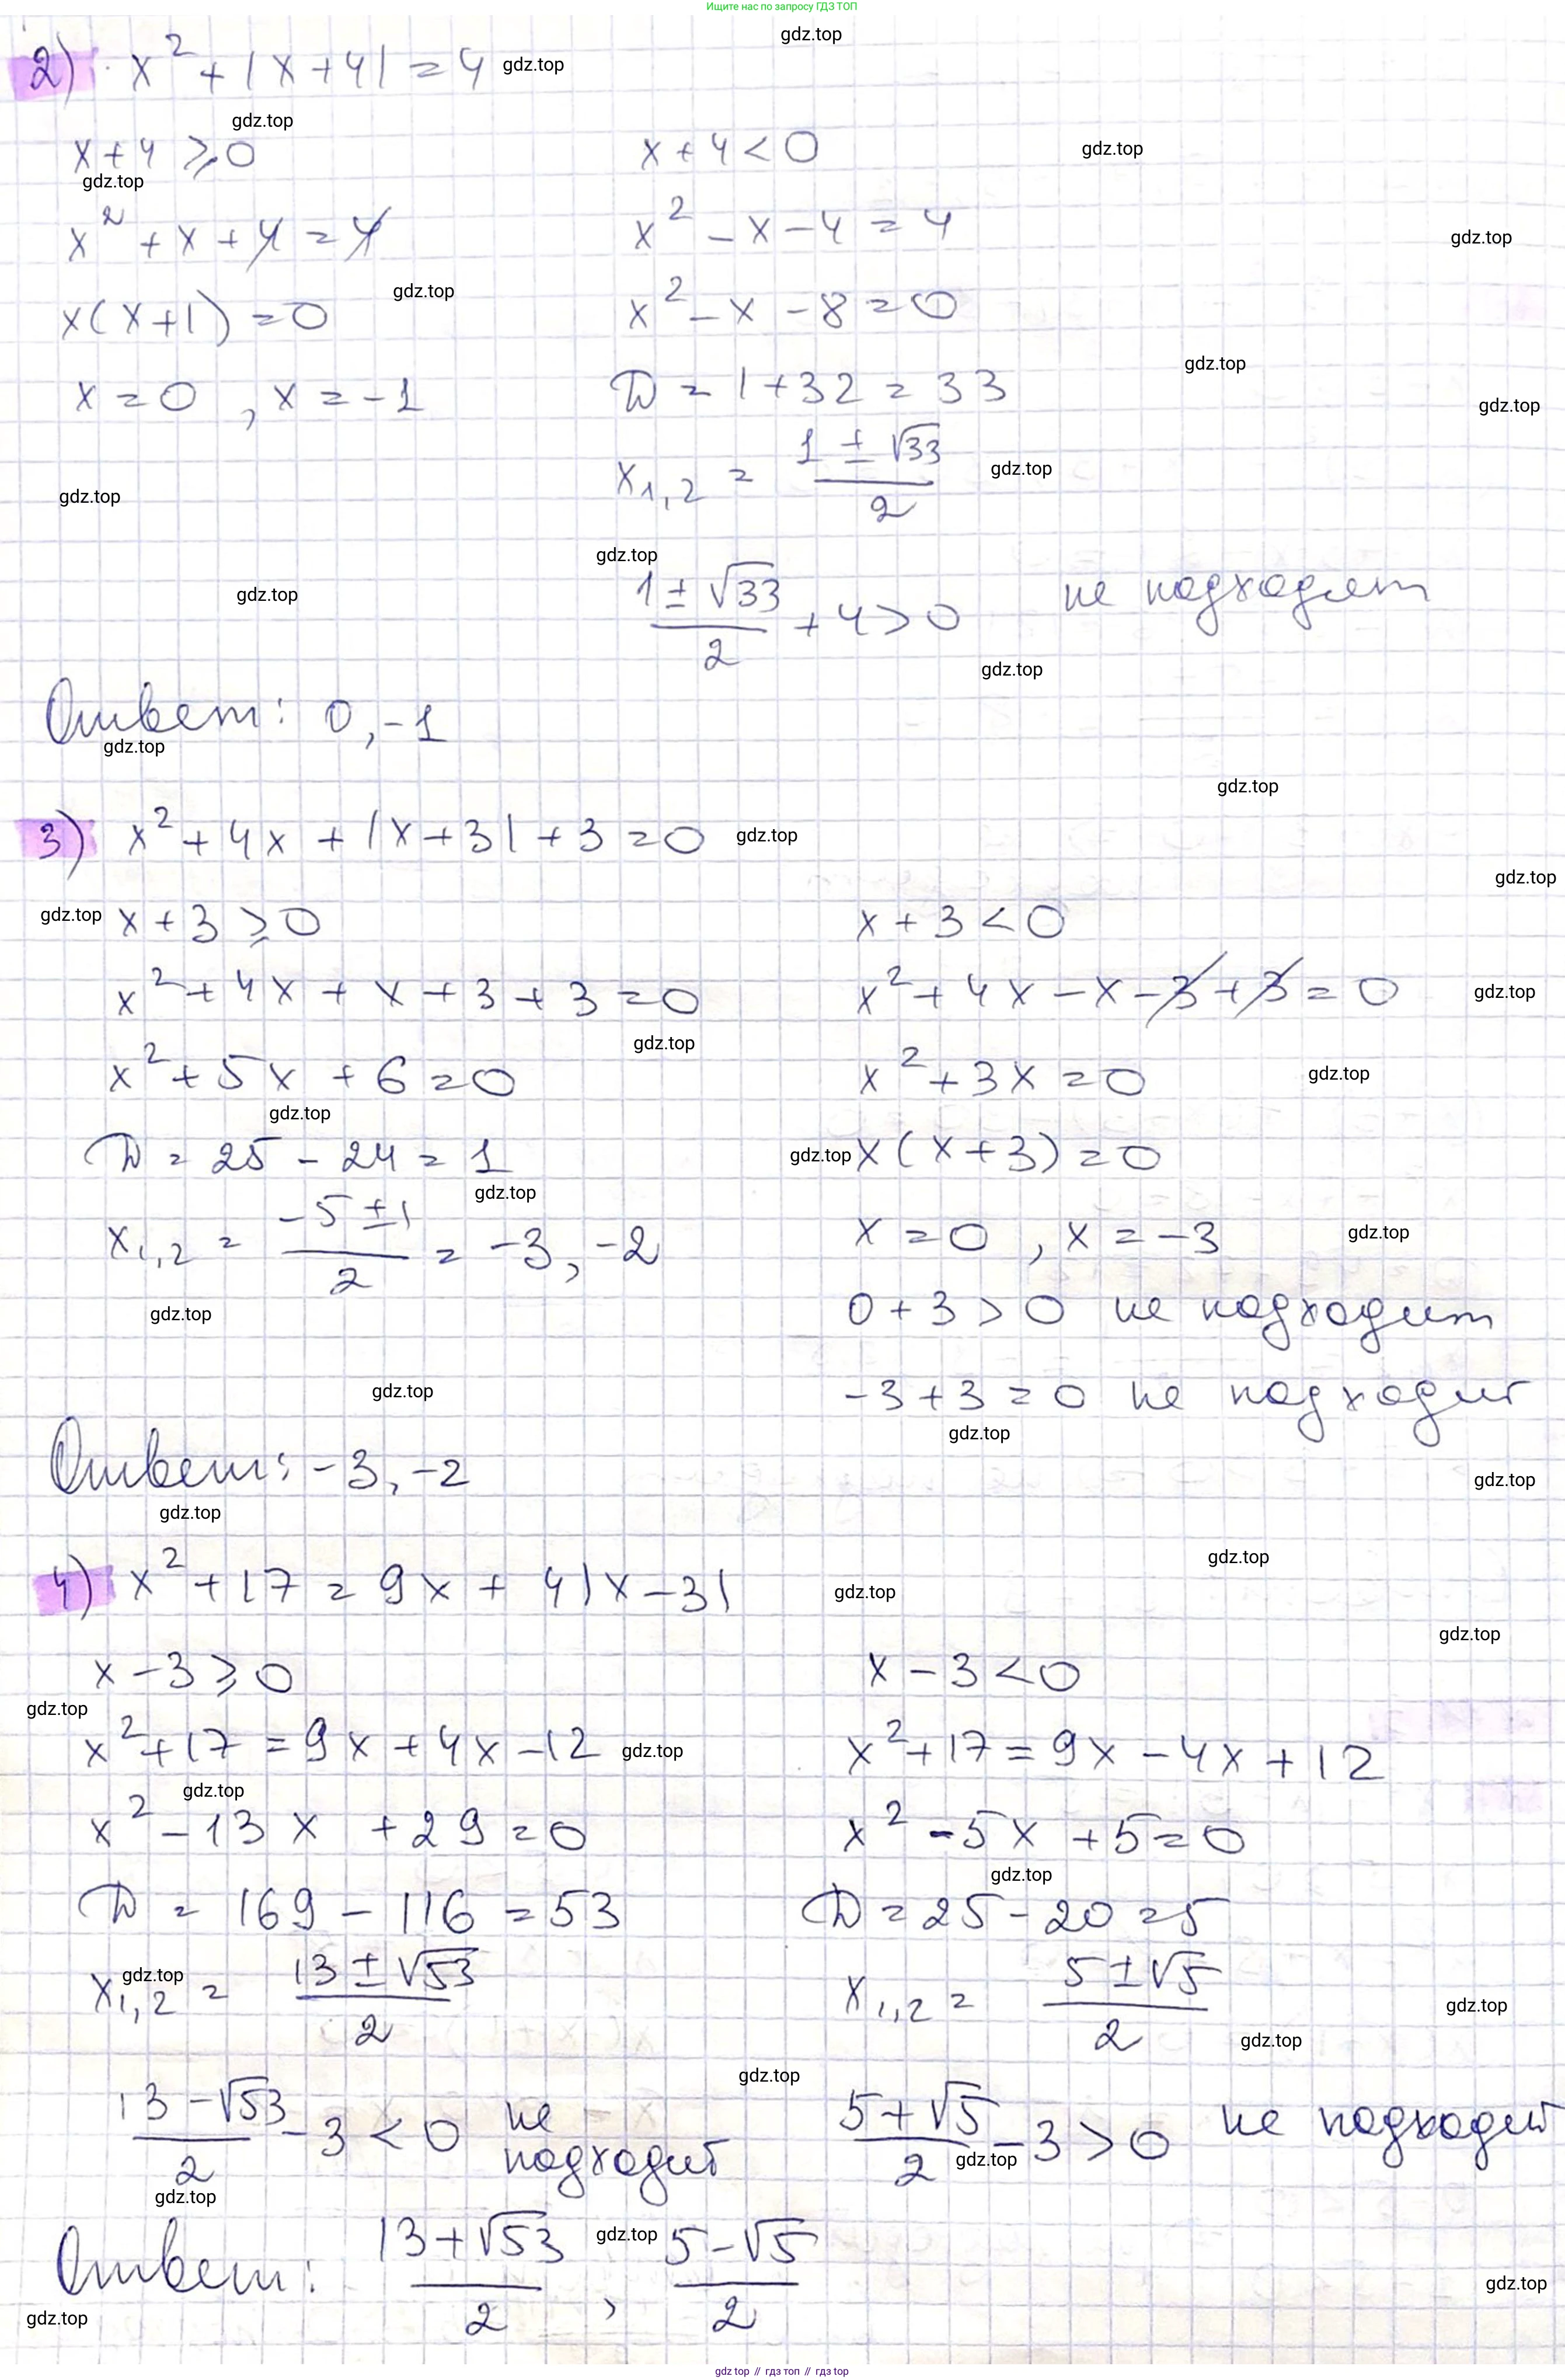 Ищите нас по запросу ГДЗ ТОП
gdz.top
2) x² + |x+4| = 4 gdz.top
gdz.top
x+4 ≥ 0 x+4 < 0 gdz.top
gdz.top
x² + x + 4 = 4 x² - x - 4 = 4 gdz.top
gdz.top
x(x+1) = 0 x² - x - 8 = 0
gdz.top
x = 0, x = -1 D = 1+32 = 33 gdz.top
x₁,₂ = (1 ± √33)/2 gdz.top
gdz.top
gdz.top
gdz.top (1 ± √33)/2 + 4 > 0 не подходят
gdz.top
Ответ: 0, -1
gdz.top
gdz.top
3) x² + 4x + |x+3| + 3 = 0 gdz.top
gdz.top
gdz.top x + 3 ≥ 0 x + 3 < 0
x² + 4x + x + 3 + 3 = 0 x² + 4x - x - 3 + 3 = 0 gdz.top
gdz.top
x² + 5x + 6 = 0 x² + 3x = 0 gdz.top
gdz.top
D = 25 - 24 = 1 gdz.top x(x+3) = 0
gdz.top
x₁,₂ = (-5 ± 1)/2 = -3, -2 x = 0, x = -3 gdz.top
gdz.top 0 + 3 > 0 не подходит
gdz.top -3 + 3 = 0 не подходит
gdz.top
Ответ: -3, -2 gdz.top
gdz.top
gdz.top
4) x² + 17 = 9x + 4|x-3| gdz.top
gdz.top
x - 3 ≥ 0 x - 3 < 0
gdz.top
x² + 17 = 9x + 4x - 12 gdz.top x² + 17 = 9x - 4x + 12
gdz.top
x² - 13x + 29 = 0 x² - 5x + 5 = 0
gdz.top
D = 169 - 116 = 53 D = 25 - 20 = 5
gdz.top
x₁,₂ = (13 ± √53)/2 x₁,₂ = (5 ± √5)/2 gdz.top
gdz.top
gdz.top
(13 - √53)/2 - 3 < 0 не подходит (5 + √5)/2 - 3 > 0 не подходит
gdz.top
gdz.top
Ответ: (13 + √53)/2, gdz.top (5 - √5)/2
gdz.top
gdz.top
gdz top // гдз топ // gdz top